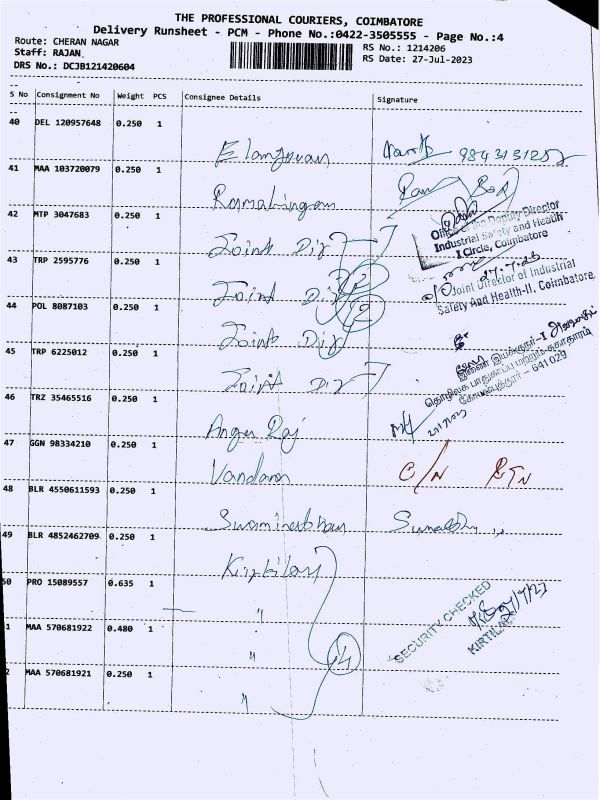 THE PROFESSIONAL COURIERS, COIMBATORE
Delivery Runsheet - PCM - Phone No.:0422-3505555 - Page No.:4
Route: CHERAN NAGAR
RS No.: 1214206
Staff: RAJAN
RS Date: 27-Jul-2023
DRS No.: DCJB121420604
S No Consignment No Weight PCS Consignee Details Signature
40 DEL 120957648 0.250 1
Elangovan 9843131252
41 MAA 103720079 0.250 1
Ramalingam
42 MTP 3047683 0.250 1
Joint Dir
Office of the Deputy Director
Industrial Safety and Health
I Circle, Coimbatore
43 TRP 2595776 0.250 1
Joint Dir
27.7.23
Joint Director of Industrial
Safety And Health-II, Coimbatore.
44 POL 8087103 0.250 1
Joint Dir
45 TRP 6225012 0.250 1
Joint Dir
இணை இயக்குநர்-I
தொழிலக பாதுகாப்பு மற்றும் சுகாதாரம்
கோயம்புத்தூர் - 641 029
46 TRZ 35465516 0.250 1
Angu Raj
47 GGN 98334210 0.250 1
Vandana C/N RTN
48 BLR 4550611593 0.250 1
49 BLR 4852462709 0.250 1
Kirtilal
50 PRO 15089557 0.635 1
"
SECURITY CHECKED
KIRTILAL
1 MAA 570681922 0.480 1
"
14
2 MAA 570681921 0.250 1
"